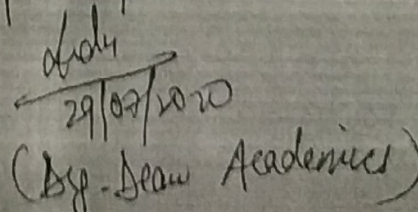 29/07/2020
(Dyp. Dean Academics)